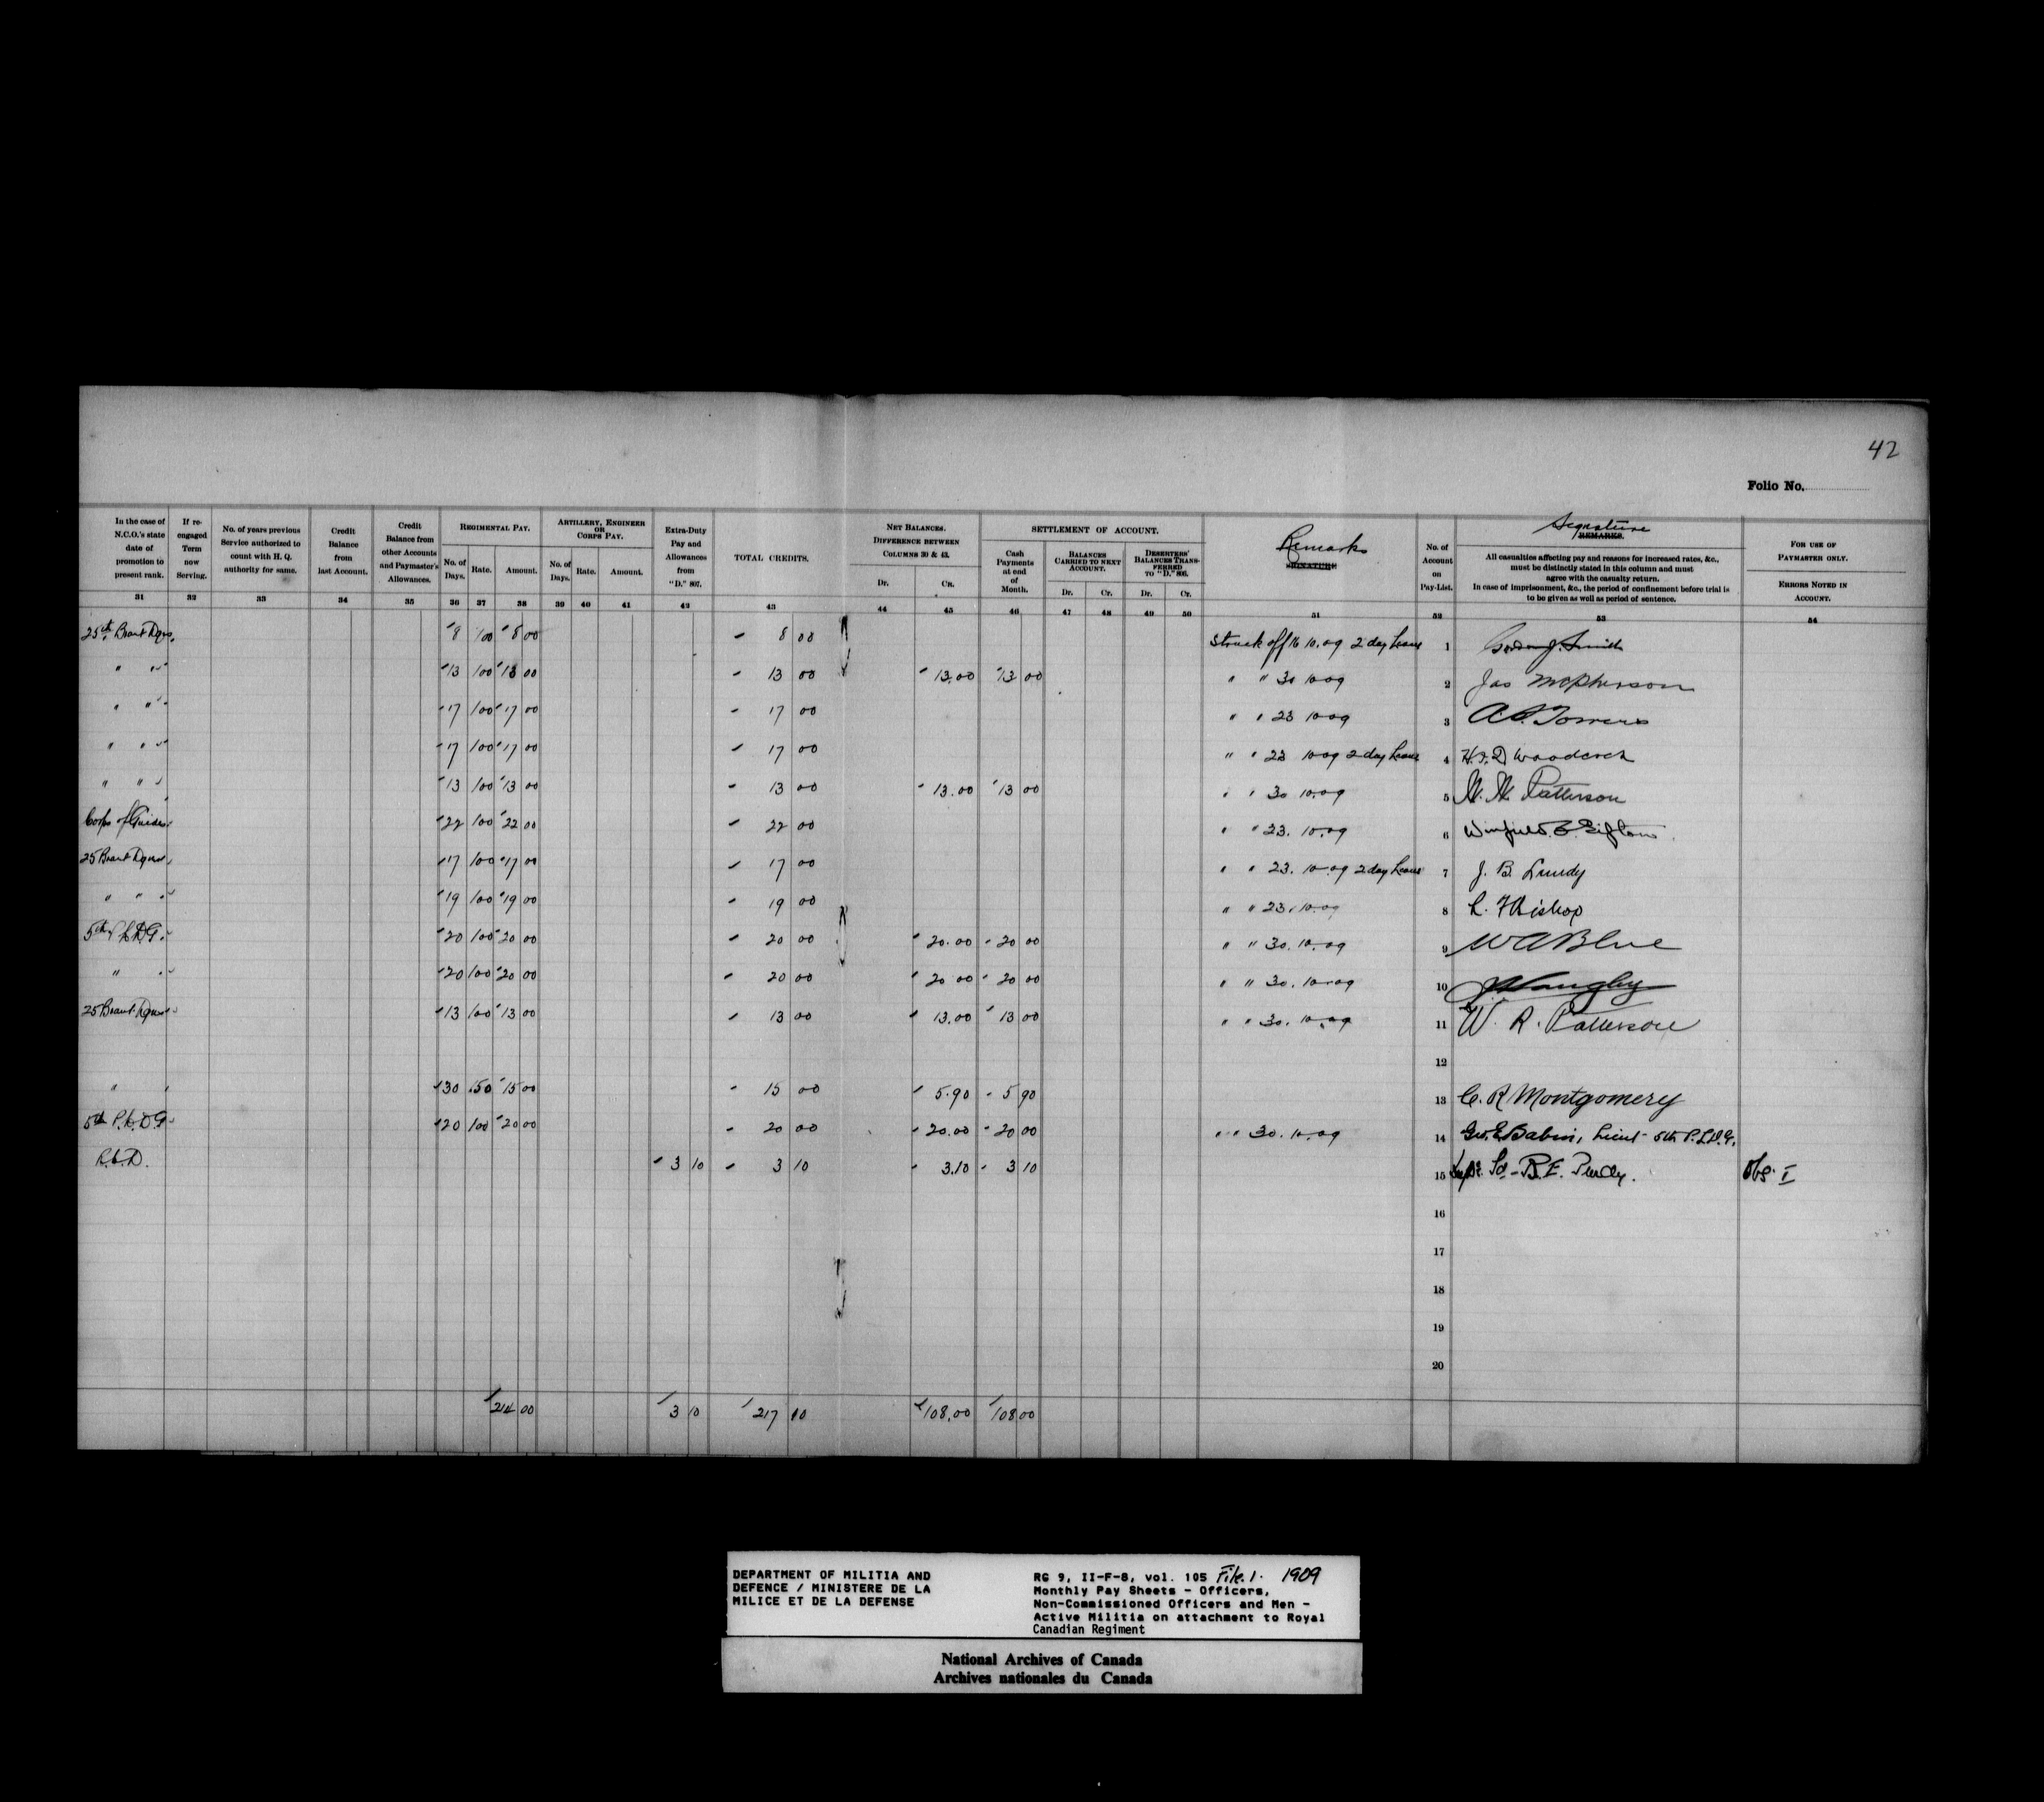 42
Folio No.
In the case of N.C.O.'s state date of promotion to present rank.
If re-engaged Term now Serving.
No. of years previous Service authorized to count with H. Q. authority for same.
Credit Balance from last Account.
Credit Balance from other Accounts and Paymaster's Allowances.
REGIMENTAL PAY.
No. of Days. Rate. Amount.
ARTILLERY, ENGINEER OR CORPS PAY.
No. of Days. Rate. Amount.
Extra-Duty Pay and Allowances from "D." 807.
TOTAL CREDITS.
NET BALANCES.
DIFFERENCE BETWEEN COLUMNS 30 & 43.
Dr. CR.
SETTLEMENT OF ACCOUNT.
Cash Payments at end of Month.
BALANCES CARRIED TO NEXT ACCOUNT.
Dr. Cr.
DESERTERS' BALANCES TRANSFERRED TO "D."
Dr. Cr.
Remarks
SIGNATURE
No. of Account on Pay-List.
Signature
REMARKS.
All casualties affecting pay and reasons for increased rates, &c., must be distinctly stated in this column and must agree with the casualty return.
In case of imprisonment, &c., the period of confinement before trial is to be given as well as period of sentence.
FOR USE OF PAYMASTER ONLY.
ERRORS NOTED IN ACCOUNT.
31 32 33 34 35 36 37 38 39 40 41 42 43 44 45 46 47 48 49 50 51 52 53 54
25th Brant Dgns. 8 100 8 00 8 00 Struck off 16 10.09 2 day Leave 1 Gordon J. Smith
" " 13 100 13 00 13 00 13.00 13 00 " " 30 10 09 2 Jas McPherson
" " 17 100 17 00 17 00 " " 23 10 09 3
" " 17 100 17 00 17 00 " " 23 10 09 2 day Leave 4 Woodcock
" " 13 100 13 00 13 00 13.00 13 00 " " 30 10.09 5 Patterson
Corps of Guides 22 100 22 00 22 00 " " 23. 10.09 6
25 Brant Dgns 17 100 17 00 17 00 " " 23. 10.09 2 day Leave 7 J. B. Lundy
" " 19 100 19 00 19 00 " " 23.10.09 8 Bishop
5th P.L.D.G. 20 100 20 00 20 00 20.00 20 00 " " 30. 10.09 9 W A Blue
" 20 100 20 00 20 00 20 00 20 00 " " 30. 10.09 10 Langley
25 Brant Dgns 13 100 13 00 13 00 13.00 13 00 " " 30. 10.09 11 W. R. Patterson
12
" 30 .50 15 00 15 00 5.90 5 90 13 C. R Montgomery
5th P.L.D.G 20 100 20 00 20 00 20.00 20 00 " " 30. 10.09 14 Geo. E Babin, Lieut 5th P.L.D.G.
R.C.D. 3 10 3 10 3.10 3 10 15 R. E. Purdy. Obs. I
16
17
18
19
20
214 00 3 10 217 10 108.00 108 00
DEPARTMENT OF MILITIA AND
DEFENCE / MINISTERE DE LA
MILICE ET DE LA DEFENSE
RG 9, II-F-8, vol. 105 File.1. 1909
Monthly Pay Sheets - Officers,
Non-Commissioned Officers and Men -
Active Militia on attachment to Royal
Canadian Regiment
National Archives of Canada
Archives nationales du Canada